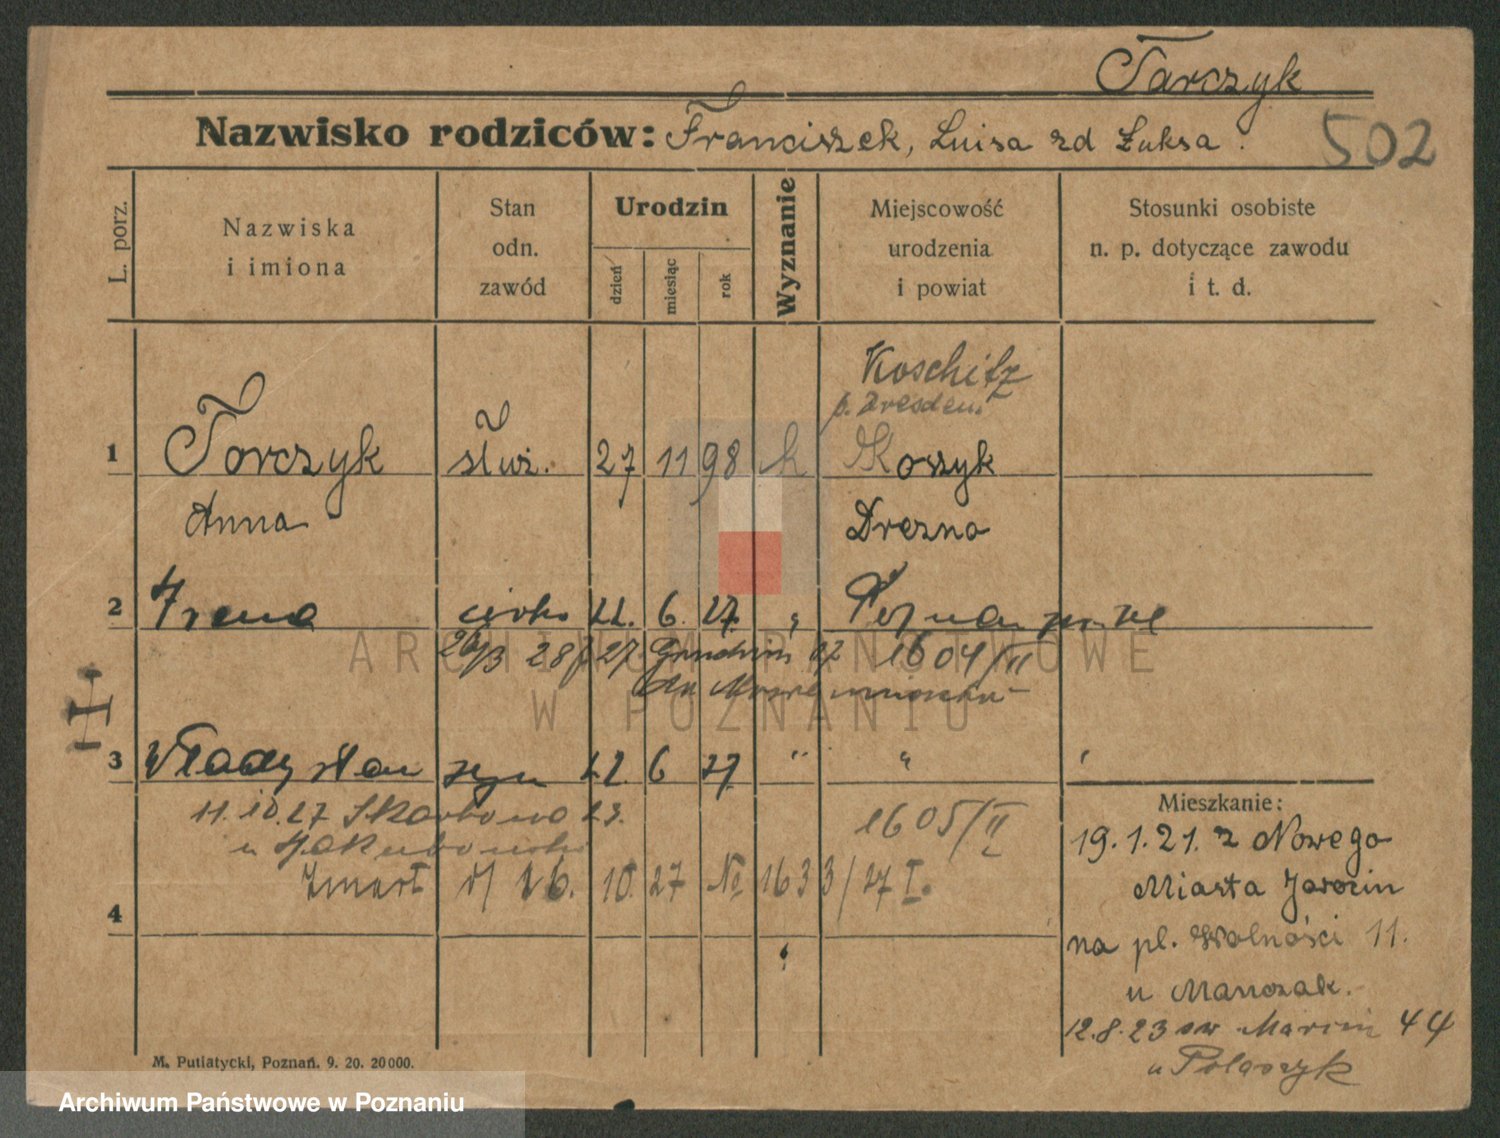 Tarczyk
Nazwisko rodziców: Franciszek, Luisa zd Łuksa.
502
L. porz.
Nazwiska i imiona
Stan odn. zawód
Urodzin
dzień
miesiąc
rok
Wyznanie
Miejscowość urodzenia i powiat
Stosunki osobiste n. p. dotyczące zawodu i t. d.
Koschitz
p. Dresden
1 Torczyk służ. 27 11 98 k Koszyk
Anna Drezno
2 Irena córka 22. 6. 27. " Poznań
28 27. 1604/II
H.
3 Władysław syn 22. 6 27 " "
11.10.27 Skarbowa 23.
u Jakubowski
1605/II
Zmarł d/ 26. 10. 27 No 1633/27 I.
4
Mieszkanie:
19.1.21. z Nowego
Miasta Jarocin
na pl. Wolności 11.
u Manczak.
12.8.23 św Marcin 44
u Polaszyk
M. Putiatycki, Poznań. 9. 20. 20000.
ARCHIWUM PAŃSTWOWE
W POZNANIU
Archiwum Państwowe w Poznaniu